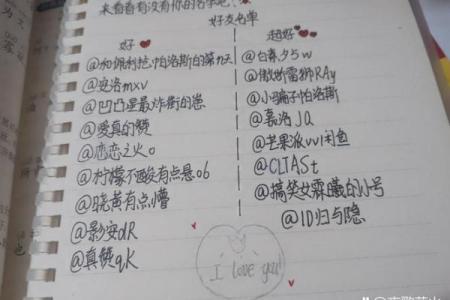 来看看有没有你的名字吧!
好友名单
好
超好
@和佩利抢帕洛斯的第九天
@安洛mxv
@凹凸星最炸街的崽
@爱真的赞
@恋恋之火o
@柠檬不酸有点悬06
@晓黄有点懵
@影安dR
@真锁qK
@白森夕5w
@傲娇雷狮RAy
@小骗子帕洛斯
@嘉洛JQ
@芒果派vvl闲鱼
@CLTASt
@搞笑女霖曦的小号
@ID归与隐
I love you!